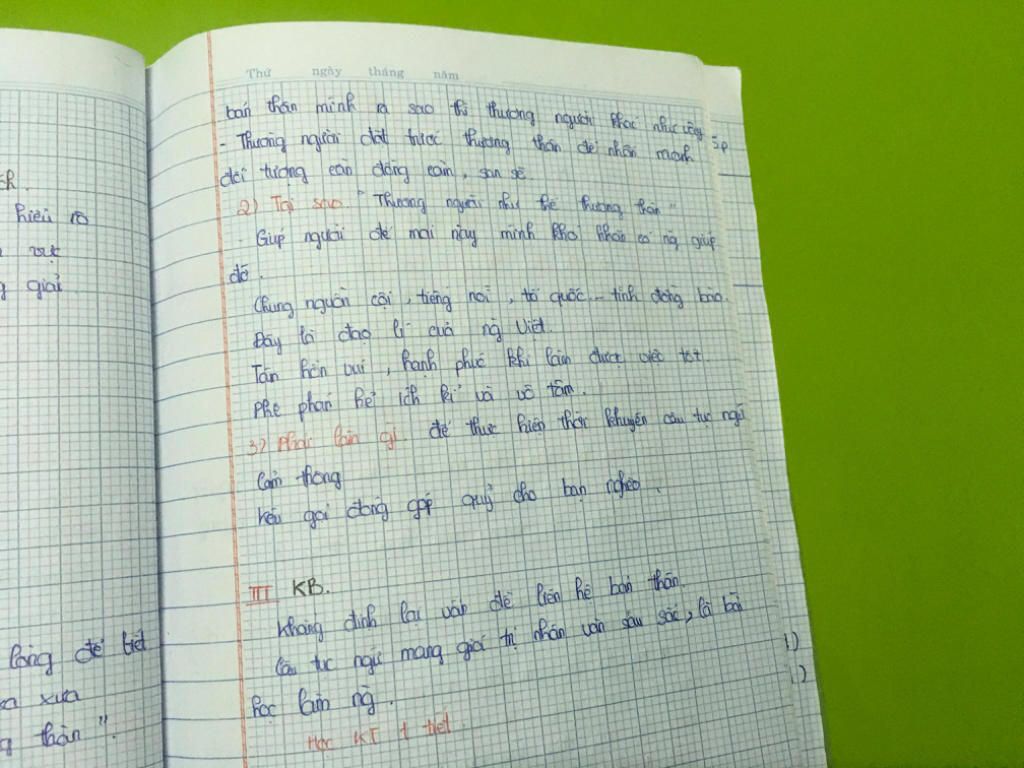 ch.
hiểu rõ
vực
g giải
lòng để biết
xa xưa
g thân".
Thứ ngày tháng năm
bản thân mình ra sao thì thương người khác như vậy
- Thương người đặt trước thương thân để nhấn mạnh
đối tượng cần đồng cảm, san sẻ.
2) Tại sao "Thương người như thể thương thân"
- Giúp người để mai này mình khó khăn có ng giúp
đỡ.
Chung nguồn cội, tiếng nói, tổ quốc... tình đồng bào.
Đây là đạo lí của ng Việt.
Tâm hồn vui, hạnh phúc khi làm được việc tốt
Phê phán kẻ ích kỉ và vô tâm.
3) Phải làm gì để thực hiện thói khuyên câu tục ngữ
Cảm thông
Kêu gọi đóng góp quỹ cho bạn nghèo.
III KB.
Khẳng định lại vấn đề liên hệ bản thân.
Câu tục ngữ mang giá trị nhân văn sâu sắc, là bài
học làm ng.
Học KI 1 tiết
1)
1)